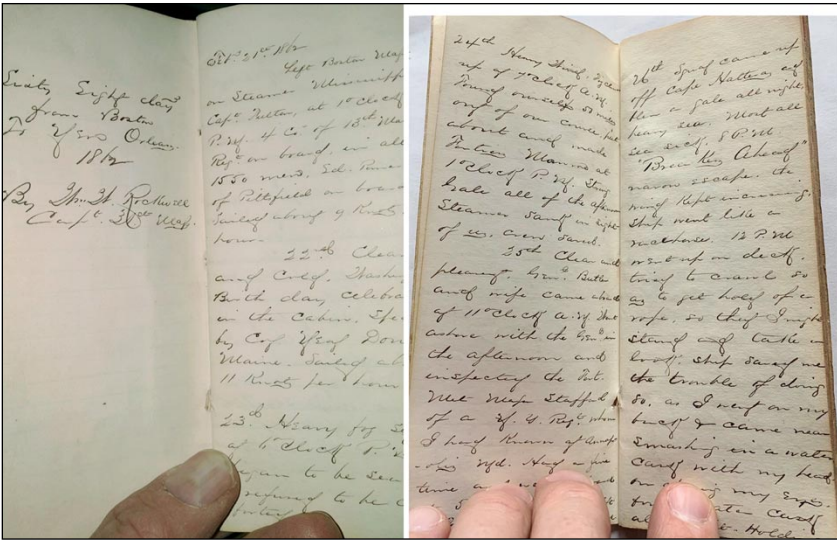 Sixty Eight days
from Boston
To New Orleans
1862
By Wm. W. Rockwell
Capt. 31st Mass.
Feb. 21st 1862
Left Boston Mass
on Steamer Mississippi
Capt. Fulton, at 1 O'Clock
P.M. 4 Co. of 13th Ma
Regt on board, in all
1550 men. Ed.
of Pittsfield on boar
Sailed about 9 Knots
hour.
22nd Clear
and Cold. Washin
Birth day celebra
in the cabin. Spe
by Col Neal Dow
Maine. Sailed ab
11 Knots per hour
23d Heavy fog
at 6 O'Clock P.M.
began to be sea
refused to be c
24th Heavy Wind.
up at 7 O'Clock A.M.
Found ourselves 50 miles
out of our course, put
about and made
Fortress Monroe at
1 O'Clock P.M. Strong
Gale all of the afternoon
Steamer sank in sight
of us, crew saved.
25th Clear and
pleasant. Genl. Butler
and wife came aboard
at 11 O'Clock A.M. Went
ashore with the Genl. in
the afternoon and
inspected the Fort.
Met Maj Stafford
of a N.Y. Regt. whom
I had Known at
Md. Had a fine
time
26th
off Cape Hatteras
blew a gale all night,
heavy sea. Most all
sea sick. 8 P.M.
"Breakers Ahead"
narrow escape. the
wind Kept increasing.
Ship went like a
racehorse. 12 P.M
went up on deck.
tried to crawl so
as to get hold of a
rope. so that I might
stand and take a
look, ship saved me
the trouble of doing
so, as I went on my
back & came near
smashing in a water
cask with my head
on my
cask
Hold